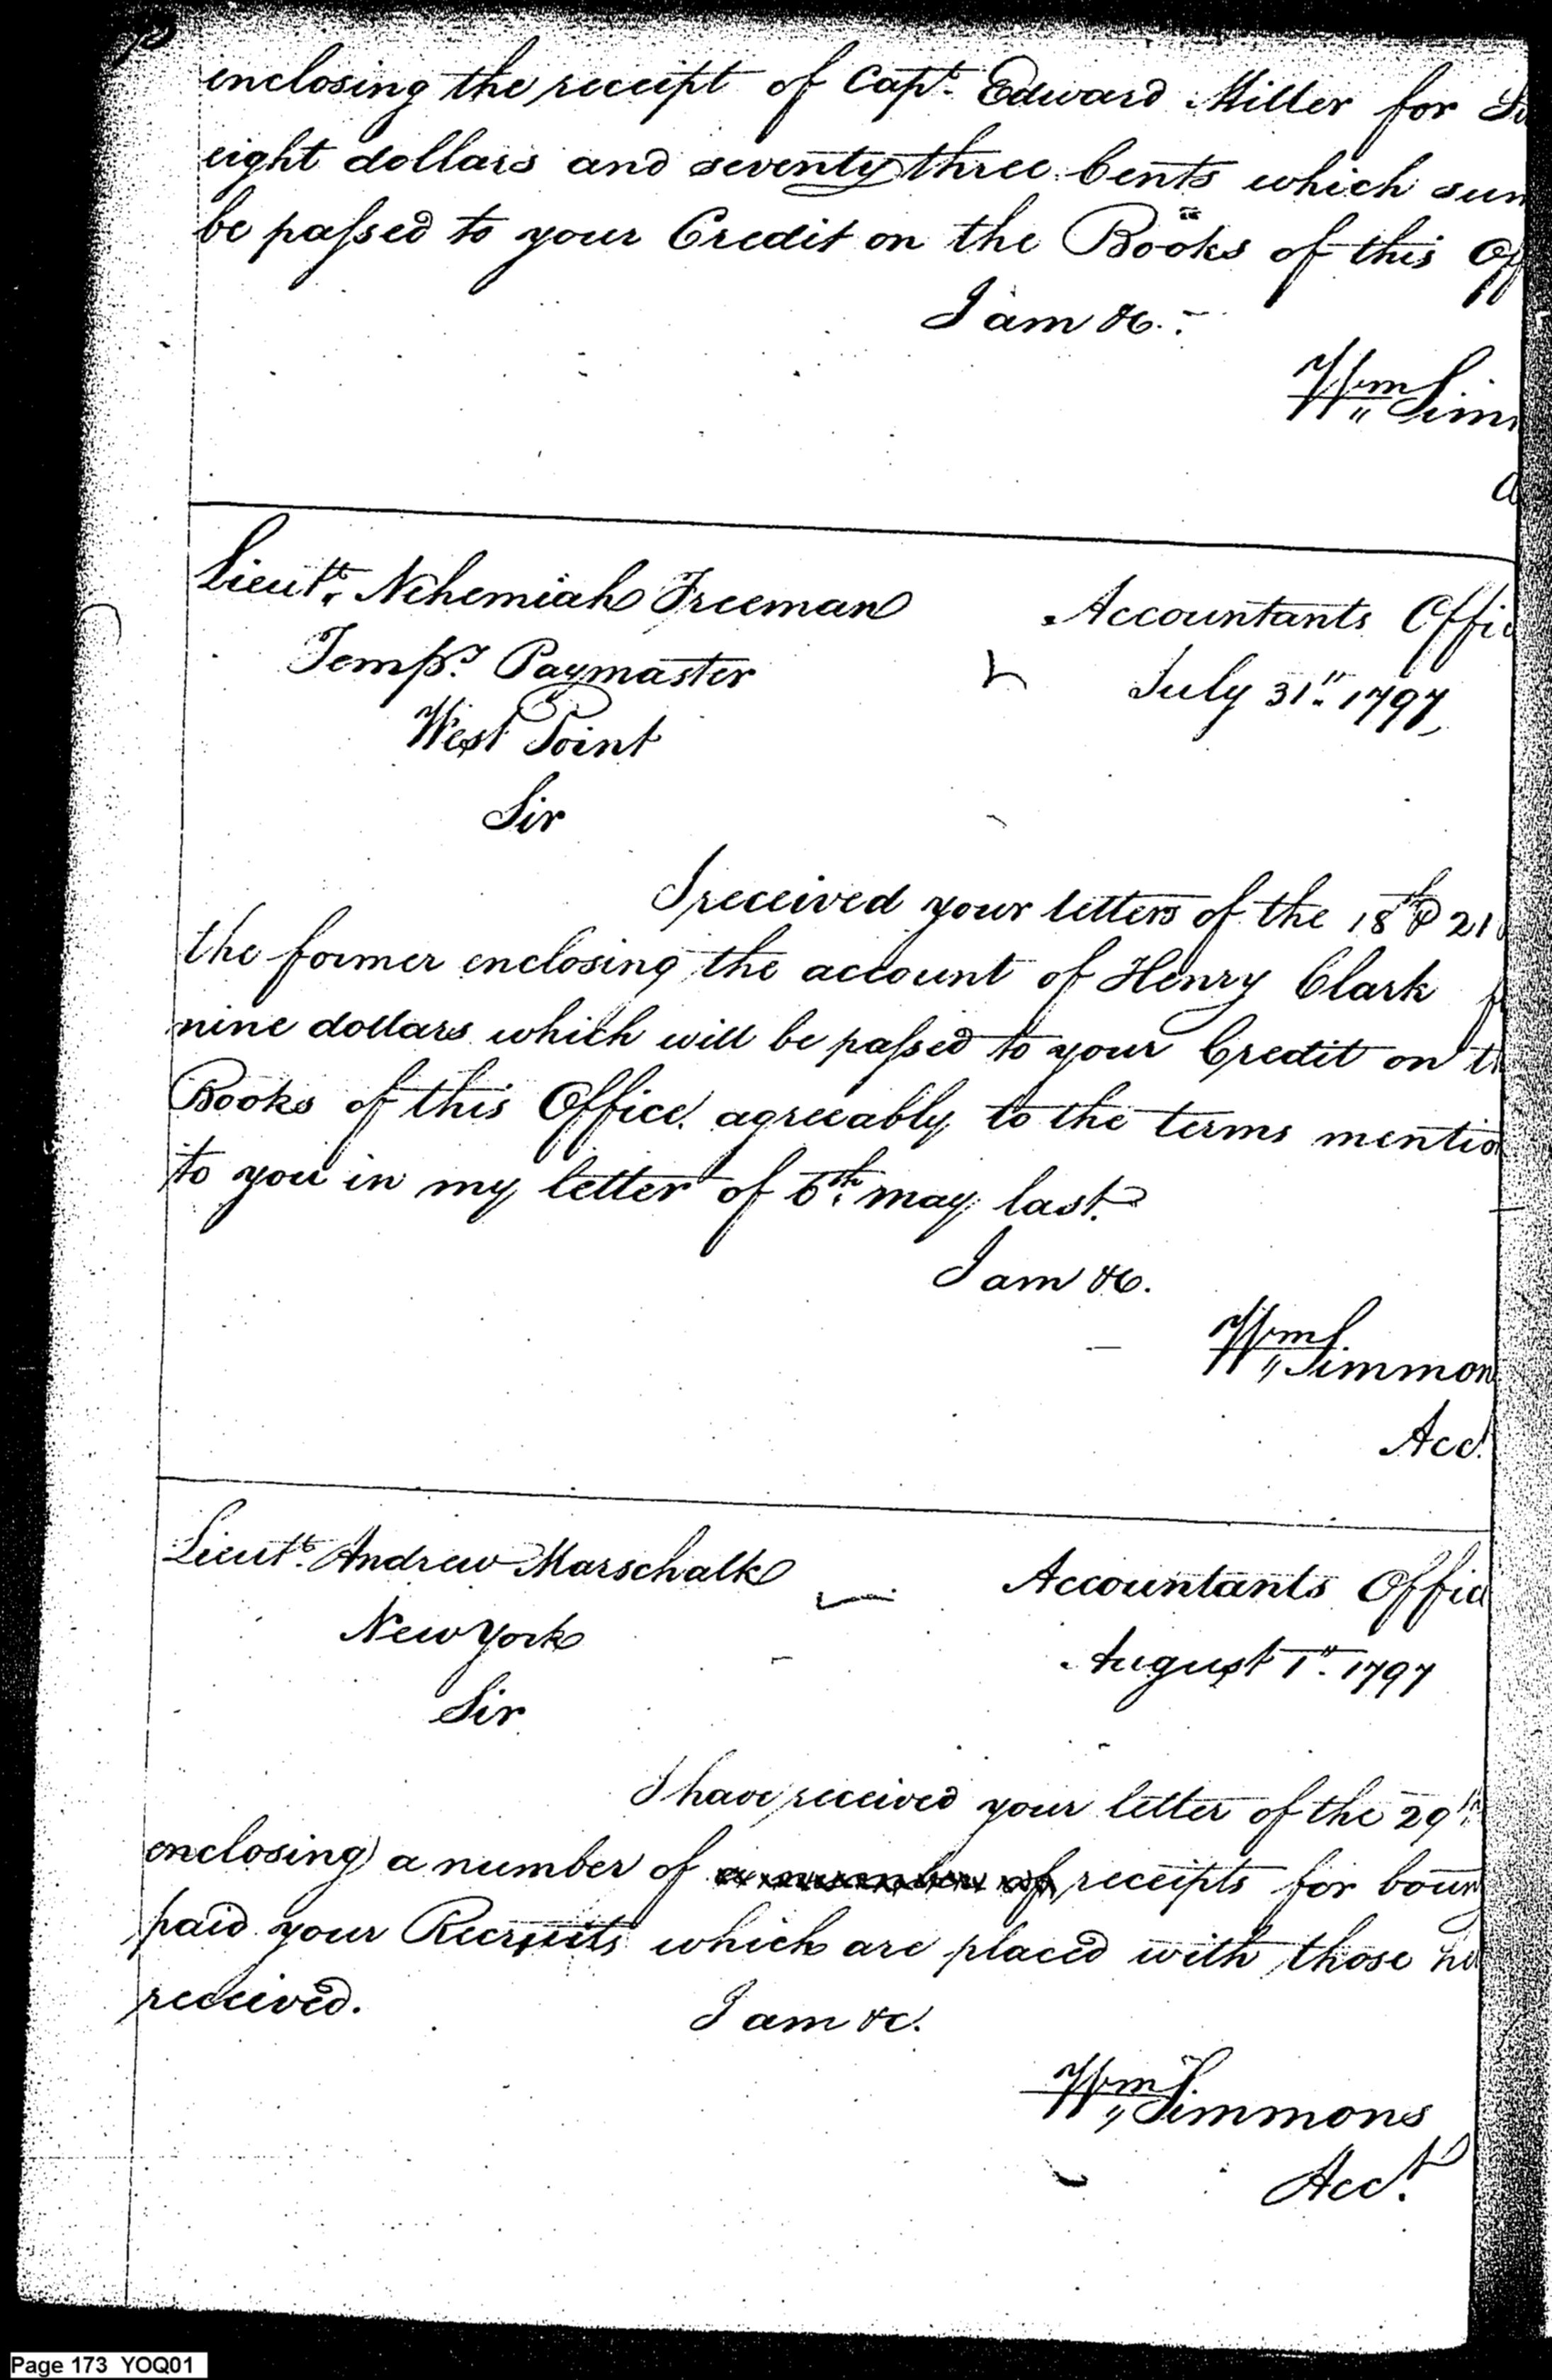 enclosing the receipt of Capt. Edward Miller for
eight dollars and seventy three Cents which sum
be passed to your Credit on the Books of this Of
I am &c.
Wm Sim
A
Lieutt. Nehemiah Freeman
Accountants Offic
Tempy. Paymaster
July 31st. 1797
West Point
Sir
I received your letters of the 18th & 21
the former enclosing the account of Henry Clark f
nine dollars which will be passed to your Credit on th
Books of this Office agreeably to the terms mentio
to you in my letter of 6th. may last.
I am &c.
Wm Simmon
Acct
Lieutt. Andrew Marschalk
Accountants Offic
New York
August 1st. 1797
Sir
I have received your letter of the 29th
enclosing a number of a number of receipts for boun
paid your Recruits which are placed with those he
received.
I am &c.
Wm Simmons
Acct.
Page 173 YOQ01